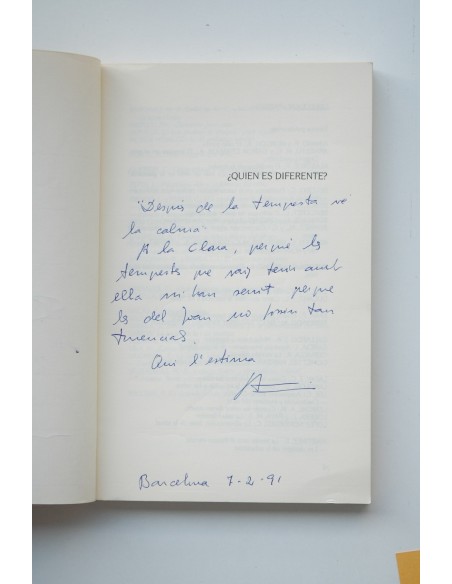 ¿QUIEN ES DIFERENTE?
"Después de la tempesta vé
la calma.
A la Clara, perquè les
tempestes que vaig tenir amb
ella m'han servit perque
les del Joan no fossin tan
Qui l'estima
Barcelona 7-2-91